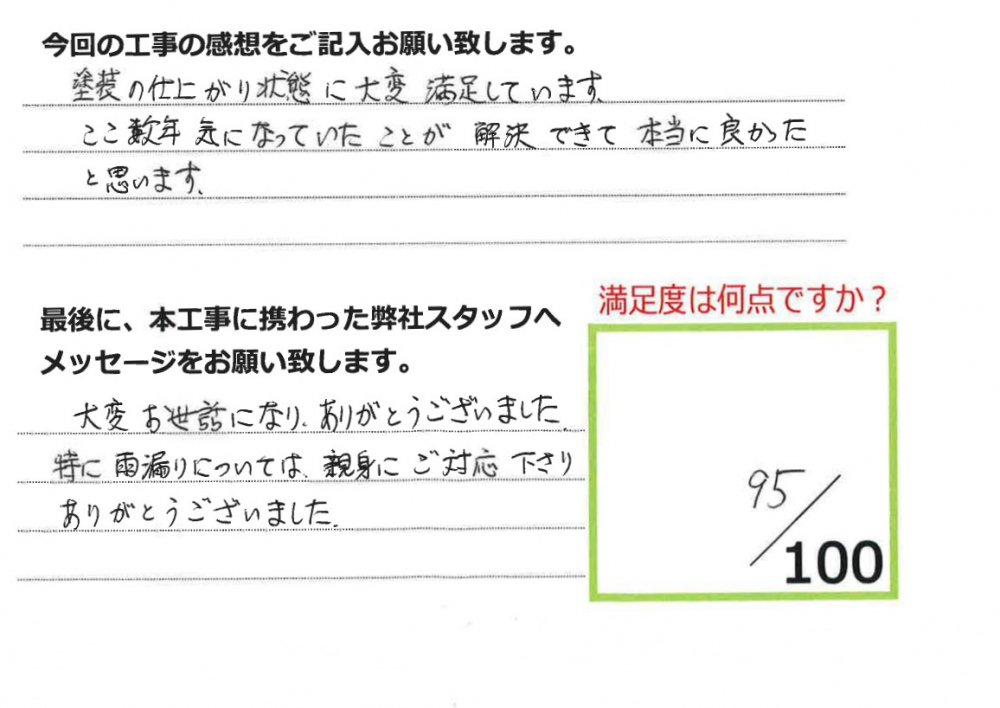 今回の工事の感想をご記入お願い致します。
塗装の仕上がり状態に大変満足しています。
ここ数年気になっていたことが解決できて本当に良かった
と思います。
最後に、本工事に携わった弊社スタッフへ
メッセージをお願い致します。
大変お世話になり、ありがとうございました。
特に雨漏りについては、親身にご対応下さり
ありがとうございました。
満足度は何点ですか？
95/100